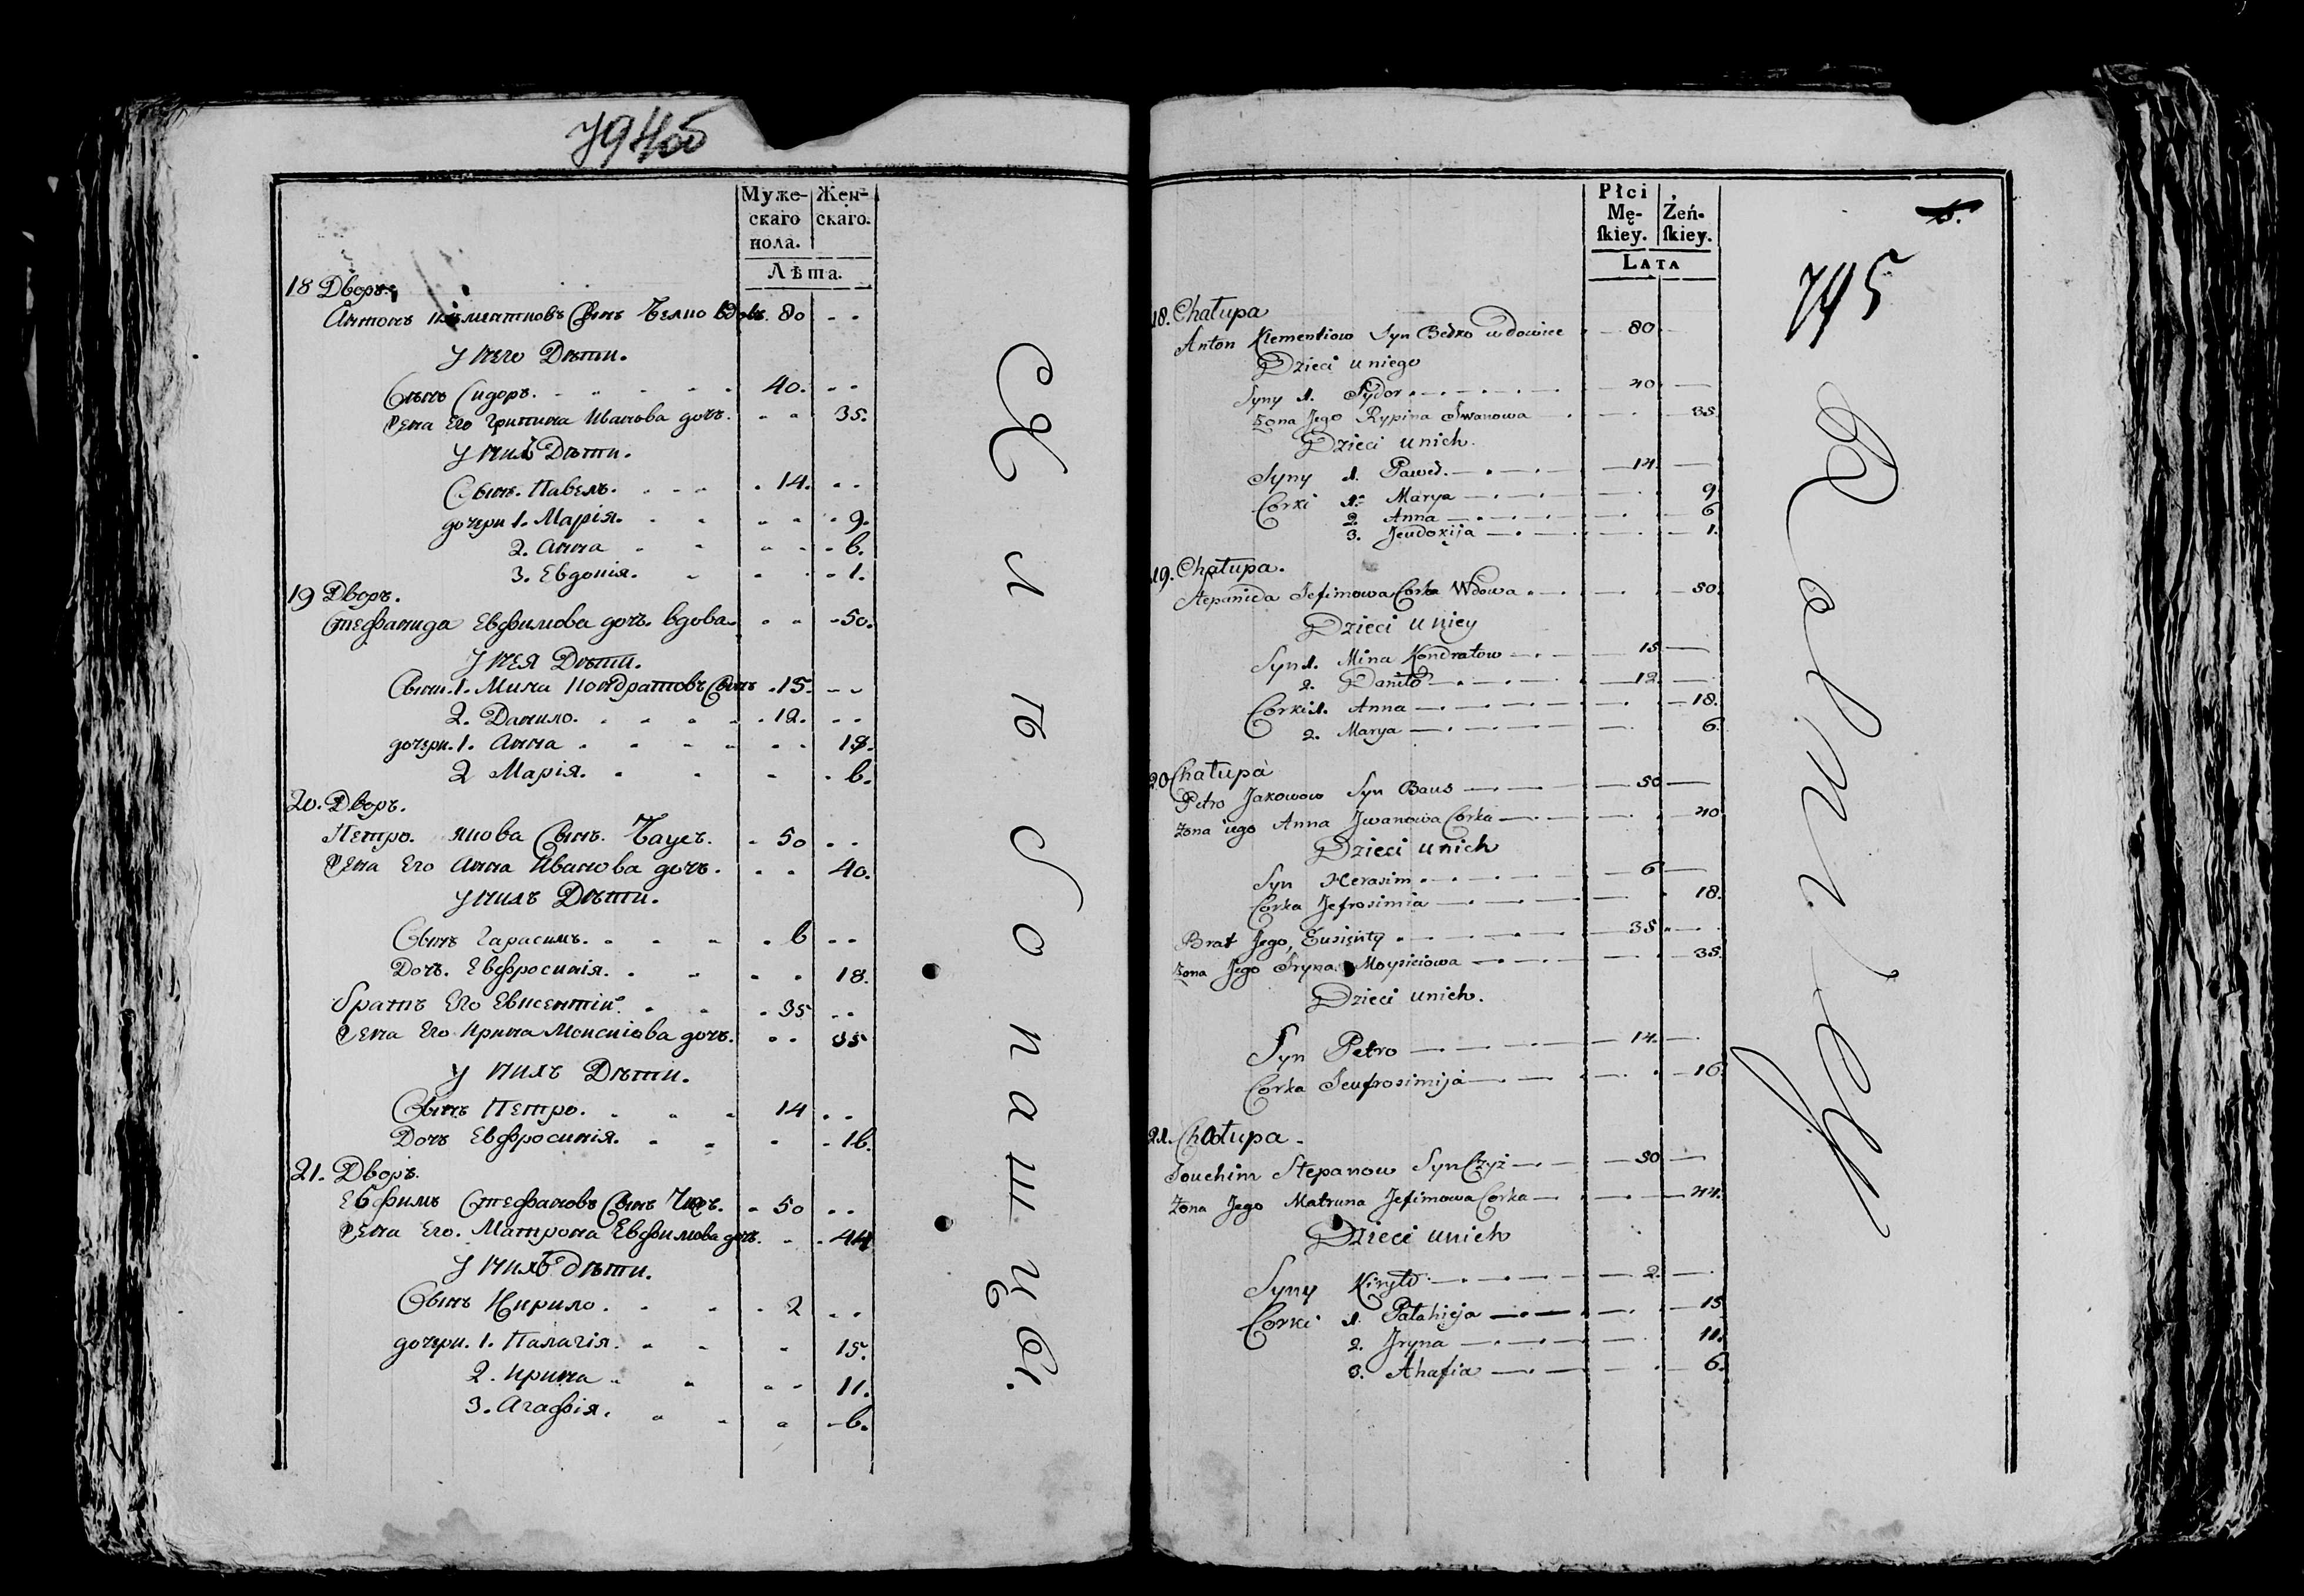 794об
Муже-
скаго
пола.
Жен-
скаго.
Лѣта.
18 Дворъ
Антонъ Клѣментиовъ Сынъ Белко Вдовъ. 80
У Него Дѣти.
Сынъ Сидоръ. 40.
Жена Его Грипина Иванова дочь. 35.
У Нихъ Дѣти.
Сынъ. Павелъ. 14.
дочери 1. Марія. 9.
2. Анна 6.
3. Евдокія. 1.
19 Дворъ.
Стефанида Евфимова дочь. вдова 50.
У НЕЯ Дѣти.
Сыны. 1. Мина Кондратовъ Сынъ 15.
2. Данило. 12.
дочери. 1. Анна 18.
2 Марія. 6.
20. Дворъ.
Петро. Якова Сынъ. Баусъ. 50
Жена Его Анна Иванова дочь. 40.
У Нихъ Дѣти.
Сынъ Гарасимъ. 6
Дочь. Евфросинія. 18.
братъ Его Евисентій. 35
Жена Его Ирина Моисиюва дочь. 35
У Нихъ Дѣти.
Сынъ Петро. 14
Дочь Евфросинія. 16.
21. Дворъ.
Евфимъ Стефановъ Сынъ Чижъ. 50
Жена Его. Матрона Евфимова дочь. 44
У Нихъ дѣти.
Сынъ Кирило. 2
дочери. 1. Палагія. 15.
2. Ирина 11.
3. Агафія. 6.
Хлѣбопашцы.
Płci
Mę-
ſkiey.
Żeń-
ſkiey.
LATA
795
18. Chałupa
Anton Klementiow Syn Bedko wdowiec 80
Dzieci u niego
Syny 1. Sydor 40
Żona Jego Rypina Iwanowa 35
Dzieci unich.
Syny 1. Paweł. 14.
Corki 1. Marya 9
2. Anna 6
3. Jeudoxija 1.
19. Chałupa.
Stepanida Jefimowa Corka Wdowa 50
Dzieci u niey
Syn 1. Mina Kondratow 15
2. Daniło 12
Corki 1. Anna 18.
2. Marya 6.
20 Chałupa
Petro Jakowow Syn Baus 50
Żona iego Anna Jwanowa Corka 40
Dzieci unich
Syn Herasim 6
Corka Jefrosimia 18.
Brat Jego, Eusięnty 35
Żona Jego Iryna Moysieiowa 35
Dzieci unich.
Syn Petro 14.
Corka Jeufrosimija 16
21. Chałupa
Jouchim Stepanow Syn Czyż 50
Żona Jego Matruna Jefimowa Corka 44.
Dzieci unich
Syny Kiryło 2.
Corki 1. Pałahieja 15
2. Jryna 11.
3. Ahafia 6.
Rolnicy